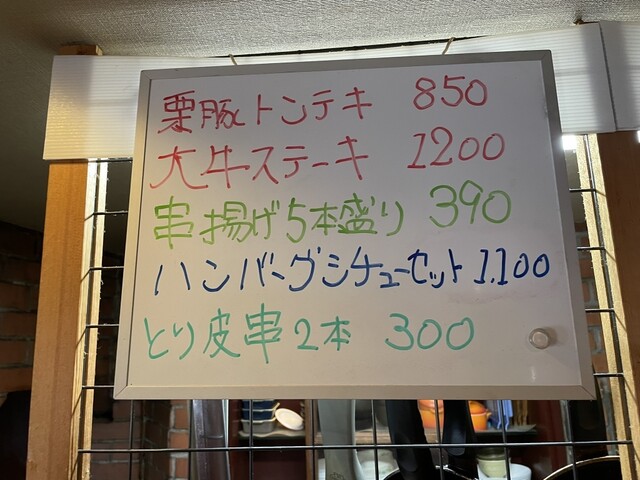 栗豚トンテキ 850
大牛ステーキ 1200
串揚げ5本盛り 390
ハンバーグシチューセット 1.100
とり皮串2本 300